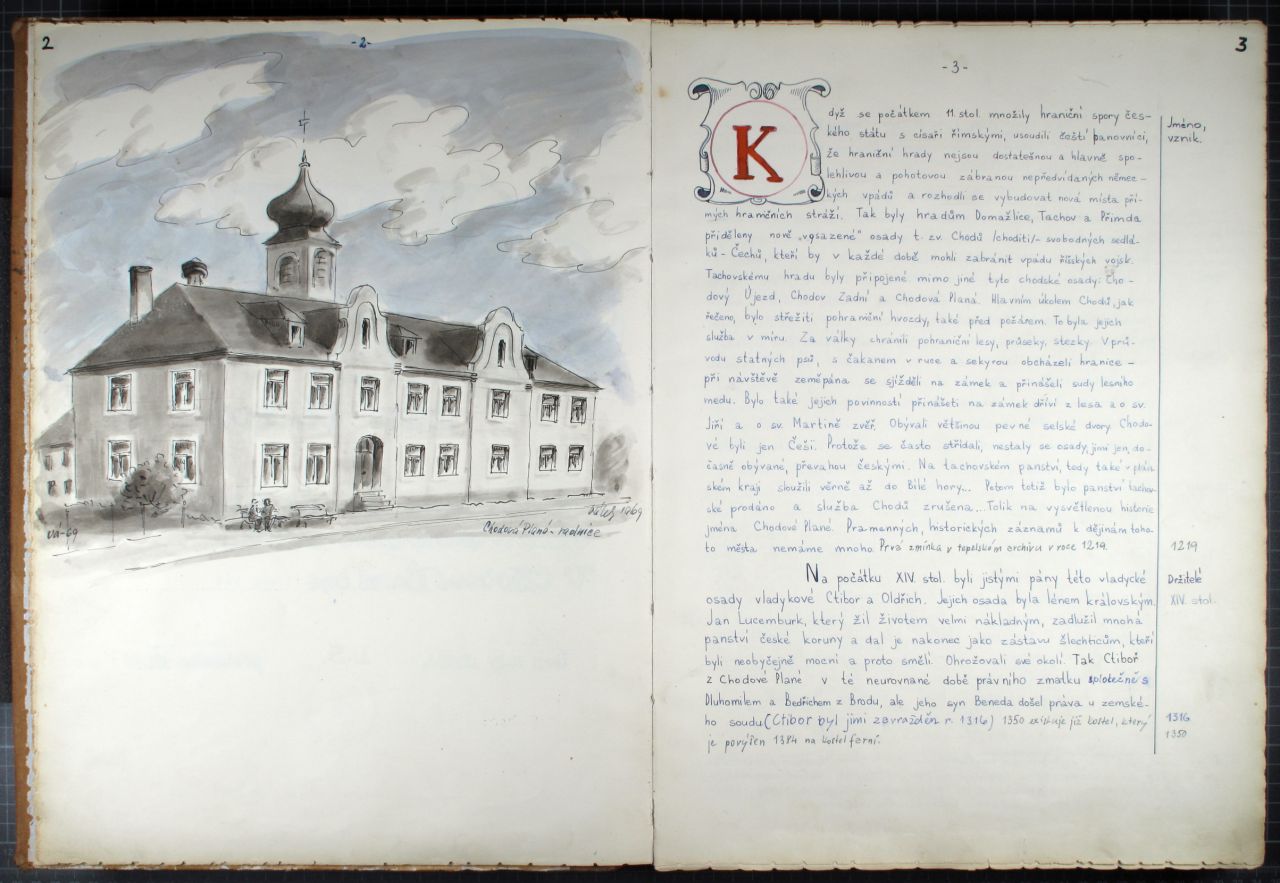 2
-2-
VII-69
1969
Chodová Planá - radnice
3
-3-
Když se počátkem 11. stol. množily hraniční spory čes-
kého státu s císaři římskými, usoudili čeští panovníci,
že hraniční hrady nejsou dostatečnou a hlavně spo-
lehlivou a pohotovou zábranou nepředvídaných němec-
kých vpádů a rozhodli se vybudovat nová místa pří-
mých hraničních stráží. Tak byly hradům Domažlice, Tachov a Přimda
přiděleny nově „vysazené" osady t. zv. Chodů /choditi/- svobodných sedlá-
ků - Čechů, kteří by v každé době mohli zabránit vpádu říšských vojsk.
Tachovskému hradu byly připojené mimo jiné tyto chodské osady: Cho-
dový Újezd, Chodov Zadní a Chodová Planá. Hlavním úkolem Chodů, jak
řečeno, bylo střežiti pohraniční hvozdy, také před požárem. To byla jejich
služba v míru. Za války chránili pohraniční lesy, průseky, stezky. V prů-
vodu statných psů, s čakanem v ruce a sekyrou obcházeli hranice -
při návštěvě zeměpána se sjížděli na zámek a přinášeli sudy lesního
medu. Bylo také jejich povinností přinášeti na zámek dříví z lesa a o sv.
Jiří a o sv. Martině zvěř. Obývali většinou pevné selské dvory. Chodo-
vé byli jen Češi. Protože se často střídali, nestaly se osady, jimi jen, do-
časně obývané, převahou českými. Na tachovském panství, tedy také v plán-
ském kraji sloužili věrně až do Bílé hory... Potom totiž bylo panství tachov-
ské prodáno a služba Chodů zrušena... Tolik na vysvětlenou historie
jména Chodové Plané. Pramenných, historických záznamů k dějinám toho-
to města nemáme mnoho. Prvá zmínka v tepelském archivu v roce 1219.
Na počátku XIV. stol. byli jistými pány této vladycké
osady vladykové Ctibor a Oldřich. Jejich osada byla lénem královským.
Jan Lucemburk, který žil životem velmi nákladným, zadlužil mnohá
panství české koruny a dal je nakonec jako zástavu šlechticům, kteří
byli neobyčejně mocní a proto smělí. Ohrožovali své okolí. Tak Ctibor
z Chodové Plané v té neurovnané době právního zmatku společně s
Dluhomilem a Bedřichem z Brodu, ale jeho syn Beneda došel práva u zemské-
ho soudu (Ctibor byl jimi zavražděn r. 1316) 1350 existuje již kostel, který
je povýšen 1384 na kostel farní.
Jméno,
vznik.
1219
Držitelé
XIV. stol.
1316
1350